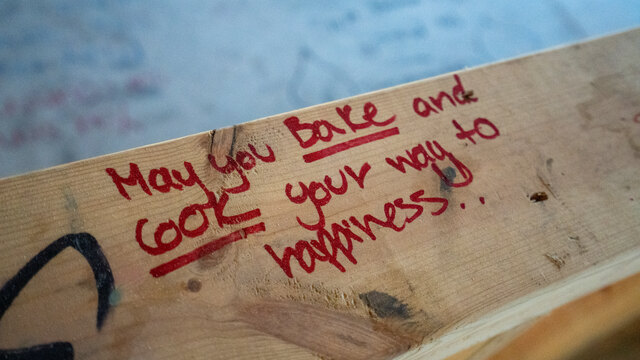 May you Bake and
cook your way to
happiness...